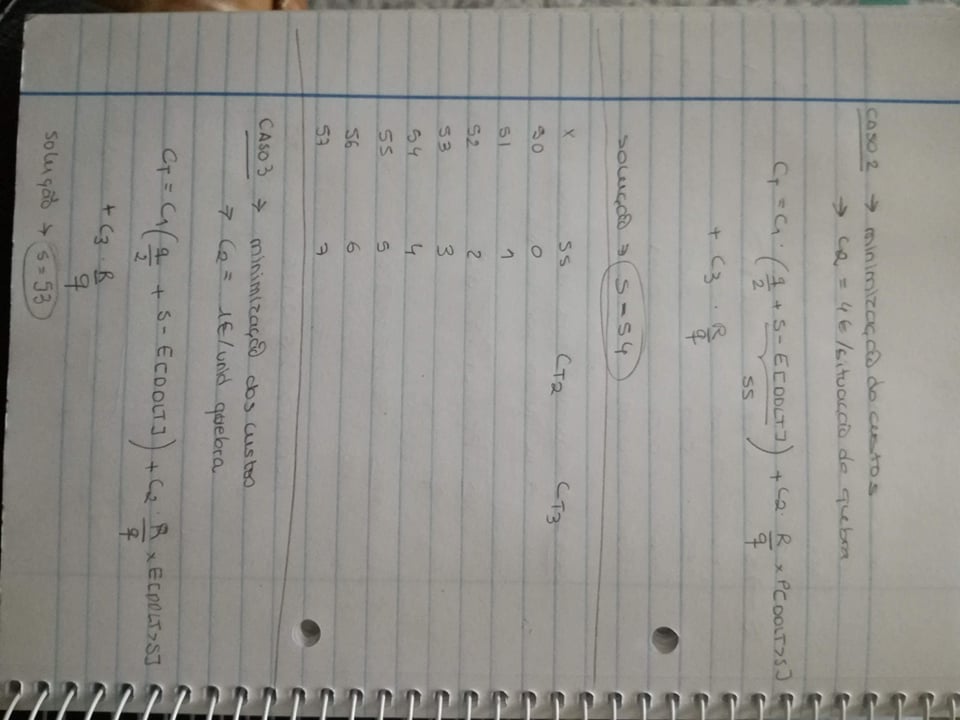 CASO 2 → minimização do custos
→ C2 = 4€/situacção do quebra
CT = C1 · (q/2 + S - E[DDLT]) + C2 · R/q × P[DDLT>S]
SS
+ C3 · R/q
solução → S = 54
X SS CT2 CT3
50 0
51 1
52 2
53 3
54 4
55 5
56 6
57 7
CASO 3 → minimização dos custos
→ C2 = 1€/unid quebra
CT = C1 (q/2 + S - E[DDLT]) + C2 · R/q × E[DDLT>S]
+ C3 · R/q
solução → S = 53